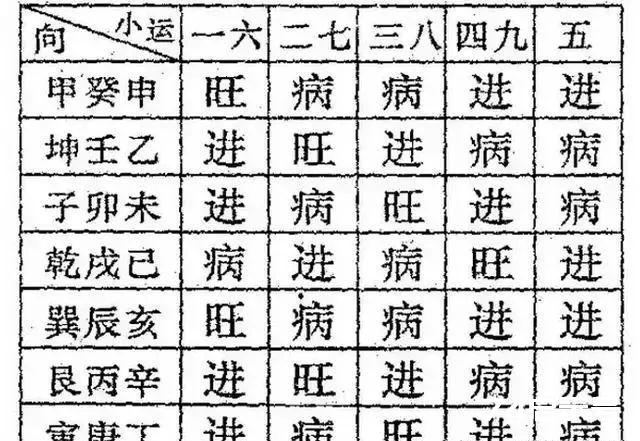 向 小运 一六 二七 三八 四九 五
甲癸申 旺 病 病 进 进
坤壬乙 进 旺 进 病 病
子卯未 进 病 旺 进 病
乾戌已 病 进 病 旺 进
巽辰亥 旺 病 病 进 进
艮丙辛 进 旺 进 病 病
寅庚丁 进 病 旺 进